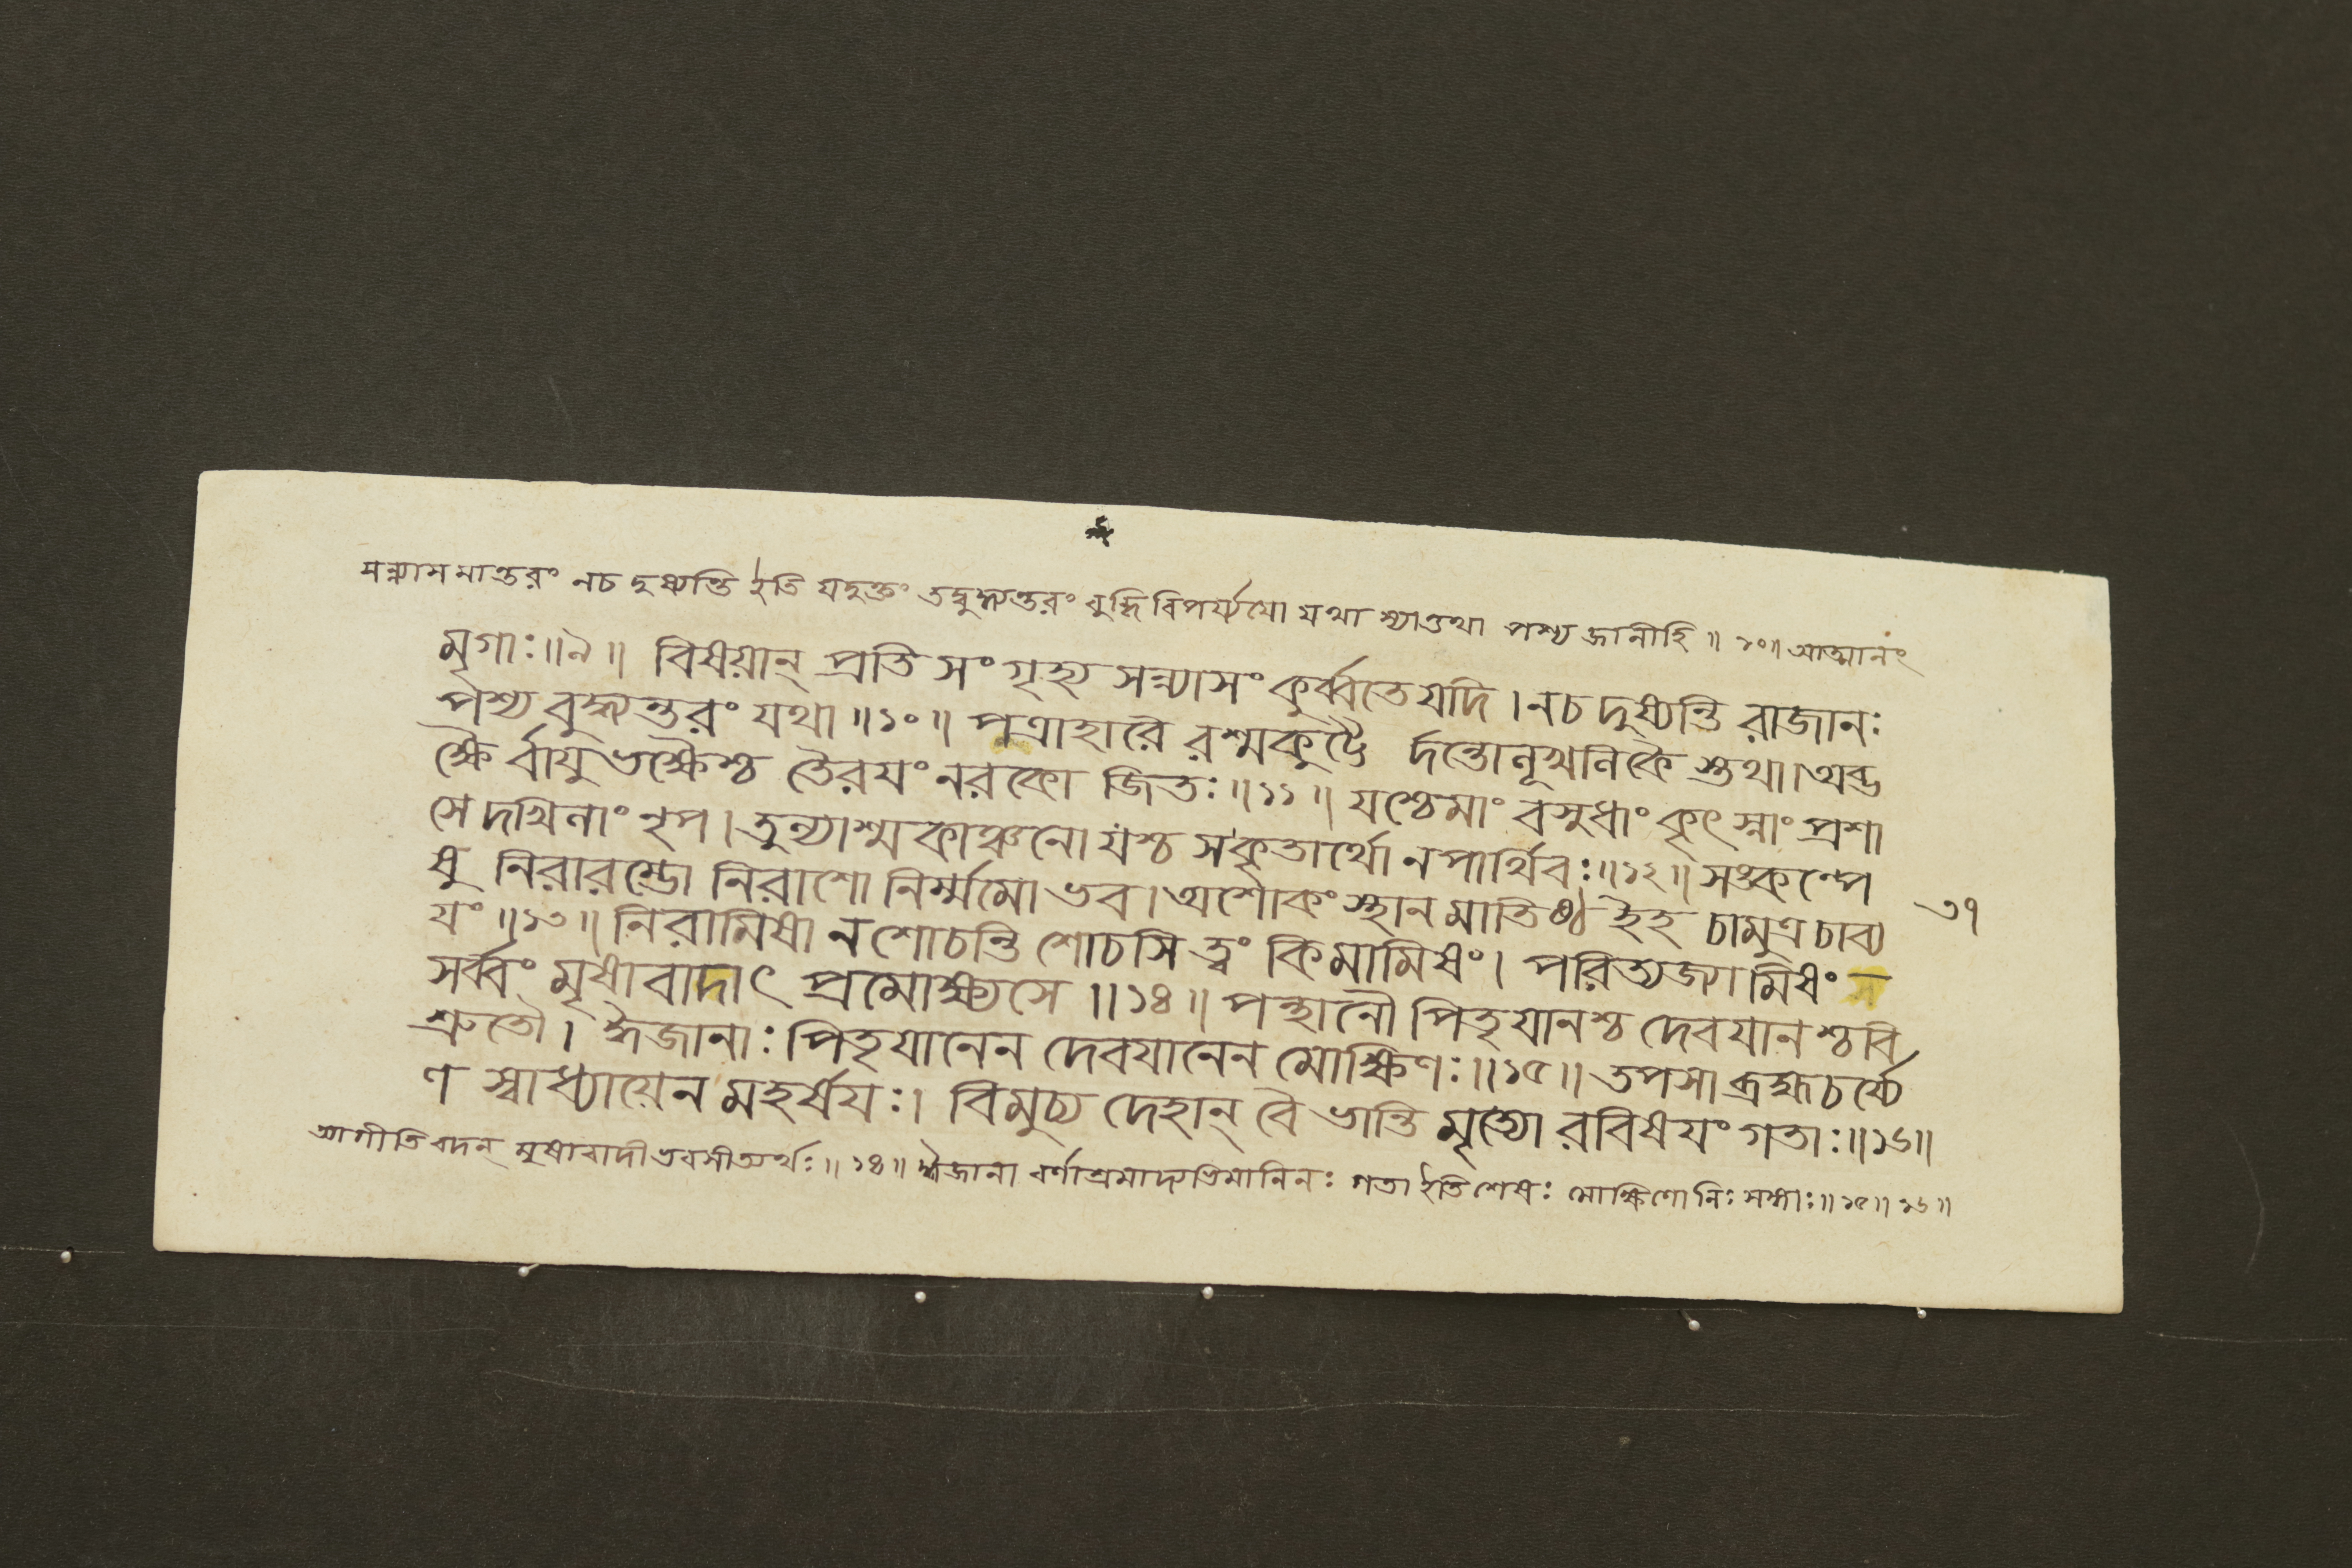 সন্ন্যাসমান্তরং নচ দুষ্যন্তি ইতি যদুক্তং তদ্বুদ্ধ্যন্তরং বুদ্ধিবিপর্য্যয়ো যথা স্যাত্তথা পশ্য জানীহি ॥ ১০॥ আত্মানং
মৃগাঃ॥৯॥ বিষয়ান্ প্রতি সংগৃহ্য সন্ন্যাসং কুর্ব্বতে যদি । নচ দুষ্যন্তি রাজানঃ
পশ্য বুদ্ধ্যন্তরং যথা ॥১০॥ পত্রাহারৈ রশ্মকুট্টৈ র্দন্তোলূখলিকৈ স্তথা। অব্ভ
ক্ষৈ র্বায়ুভক্ষৈশ্চ তৈরয়ং নরকো জিতঃ॥১১॥ যশ্চেমাং বসুধাং কৃৎস্নাং প্রশা
সেদখিলাং নৃপ। তুল্যাশ্মকাঞ্চনো যশ্চ সকৃতার্থো নপার্থিবঃ॥১২॥ সঙ্কল্পে
ষু নিরারম্ভো নিরাশো নির্ম্মমো ভব। অশোকং স্থানমাতিষ্ঠ ইহ চামুত্র চাব্য
৩৭
য়ং ॥১৩॥ নিরামিষা নশোচন্তি শোচসি ত্বং কিমামিষং। পরিত্যজ্যামিষং
সর্ব্বং মৃষাবাদাৎ প্রমোক্ষ্যসে ॥১৪॥ পন্থানৌ পিতৃযানশ্চ দেবযানশ্চ বি
শ্রুতৌ। ঈজানাঃ পিতৃযানেন দেবযানেন মোক্ষিণঃ॥১৫॥ তপসা ব্রহ্মচর্য্যে
ণ স্বাধ্যায়েন মহর্ষয়ঃ। বিমুচ্য দেহান্ বৈ ভান্তি মৃত্যো রবিষয়ং গতাঃ॥১৬॥
ত্যাগীতি বদন্ মৃষাবাদী ভবসীত্যর্থঃ॥ ১৪॥ ঈজানা বর্ণাশ্রমাদ্যভিমানিনঃ গতা ইতি শেষঃ মোক্ষিণো নিঃসঙ্গাঃ॥ ১৫॥ ১৬॥